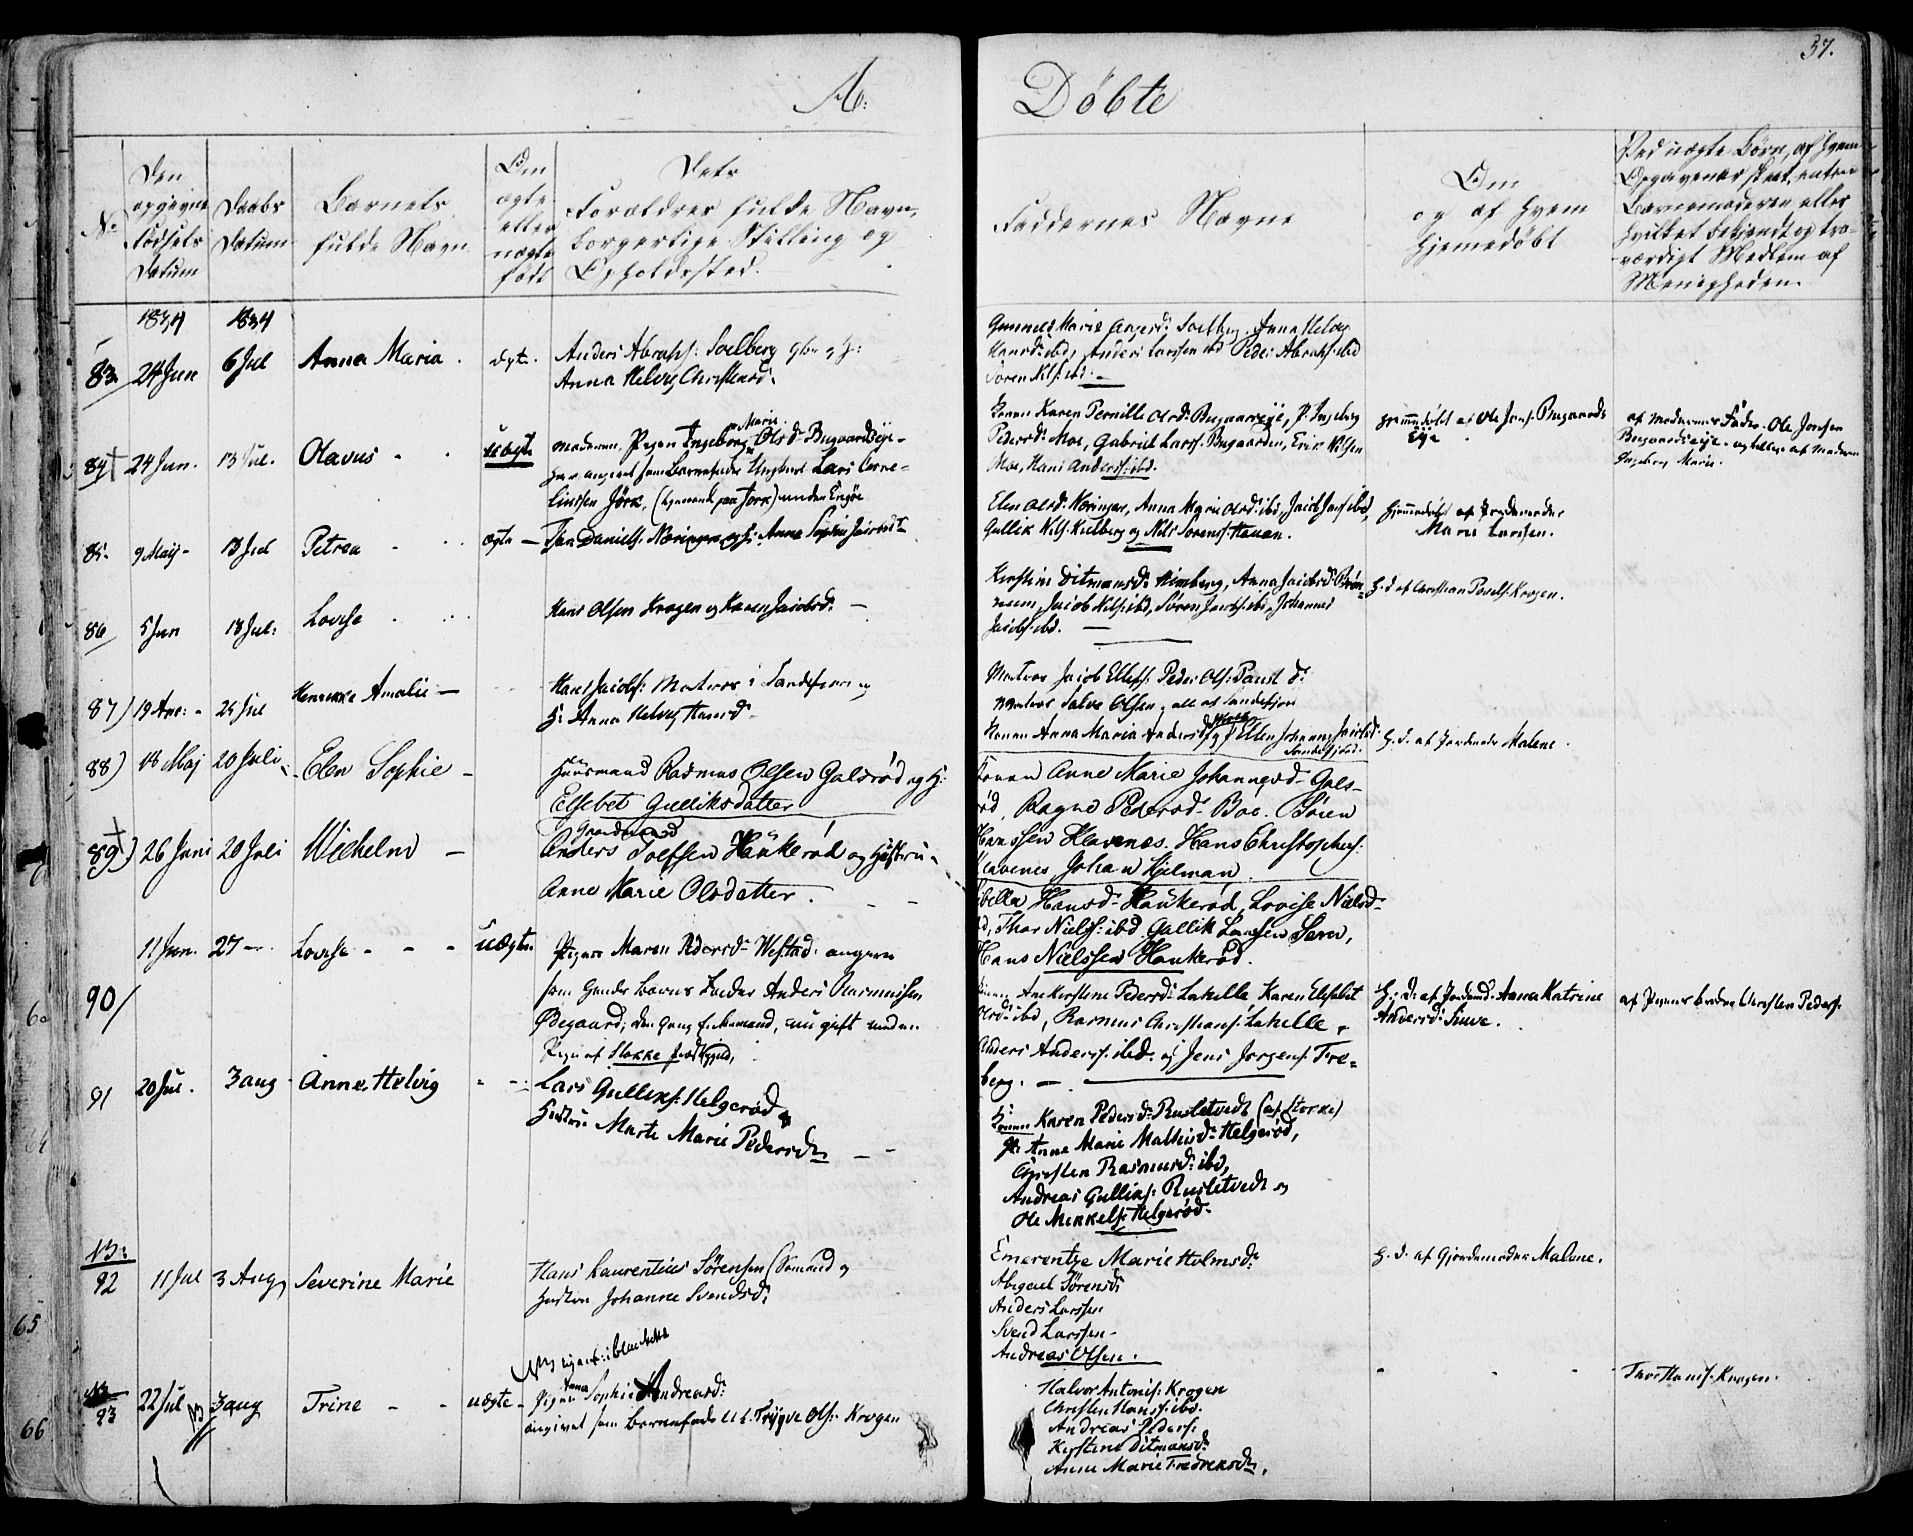 A:
Døbte
37.
No
Den
opgivne
Fødsels
Datum
Daabs
Datum
Barnets
fulde Navn
Om
ægte
eller
uægte
født
Dets
Forældres fulde Navn,
borgerlige Stilling og
Opholdssted.
Faddernes Navne
Om
og af hvem
hjemedøbt
Ved uægte Børn, af hvem
Opgivenes skeet, enten
Barnemoderen eller
hvilket bekjendt og tro-
værdigt Medlem af
Menigheden.
1834 1834
83 24 Jun 6 Jul Anna Maria. ægte. Anders Abrahs: Soelberg og H:
Anna Helvig Christensd:
Gunnild Marie Soelberg, Anna Helvig
Hansd: ibd, Anders Larssen ibd Peder Abrahs: ibd
Søren Nils: ibd. —
84 24 Jun. 13 Jul. Olavus - uægte moderen Pigen Ingeborg Marie Olsd: Bugaardseje -
har angivet som Barnefader Ungkarl Lars Corne-
liussen Jørk, (hjemme paa Jørk) under
Konen Karen Pernille Olsd: Bugaardeje, P. Ingeborg
Pedersd: Moe, Gabriel Larss: Bugaarden, Erik Nilsen
Moe, Hans Anderss: ibd.
hjemmedøbt af Ole Jons: Bugaards
Eje
af Moderens Fader Ole Jonsen
Bugaardseje - og tillige af Moderen
Ingeborg Marie.
85. 9 Maij - 13 Jul Petrea - ægte — Jan Daniels: Næringen og H: Anna Sophie Jacobsd:
Elen Olsd: Noringen, Anna Marie Olsd: ibd, Jacob Jans: ibd,
Gullik Nils: Kielberg og Nils Sorens: Hauan.
hjemmedøbt af Jordemoder
Maren Larssen.
86 5 Jun 13 Jul: Lovise Hans Olsen Krogen og Karen Jacobsd: —
Kirstine Ditmansd: Virnberg, Anna Jacobsd: Brøn-
nesem, Jacob Nils: ibd, Søren Jacobs: ibd, Johannes
Jacobs: ibd. —
H. d af Christian Povels: Krogen.
87) 19 24 Jul Henrikke Amalie — Hans Jacobs: Matros i Sandefjord og
H: Anna Helvig Hansd:
Matros Jacob Ellefs: Peder Ols: Paust d:
Matros Salve Olsen, alle af Sandefjord
Konen Anna Maria Andersd: og P. Ellen Johanne Jacobsd:
Sandefjord.
88) 18 Maj 20 Juli Elen Sophie - Huusmand Rasmus Olsen Galsrød og H:
Elsebet Gulliksdatter
H. d. af Jordemoder Malene.
Konen Anne Marie Johannesd: Gals-
rød, Ragne Pedersd: Boe. Søren
Hanssen Klavenes. Hans Christophers:
Klavenes Johan Hjelman.
89) 26 Juni 20 Juli Wilhelm — Gaardmand
Anders Toefsen Haukerød og Hustru
Anne Marie Olsdatter.
Hansd: Haukerød, Lovise Nielsd:
ibd, Thor Nielss: ibd. Gullik Larssen Sæve,
Hans Nielssen Haukerød.
90/ 11 Jun. 27 — Lovise - - - uægte. Pigen Maren Pedersd: Westad: angiven
som hendes Barns Fader Anders Rasmussen
Ødegaard, den gang Enkemand, nu gift med en
Pige af Stokke Præstegjeld.
Konen Ane Kirstine Pedersd: Lahelle Karen Elisabet
Olsd: ibd, Rasmus Christians: Lahelle,
Anders Anderss: ibd. og Jens Jørgens: Fre-
berg. —
H: d: af Jordmd: Anna Katrine
Andersd:
af Pigens broder Christen Peders:
91 20 Jul. 3 aug Anne Helvig - - Lars Gulliks: Helgerød og
Hustru Marte Marie Pedersd:
H:
Konen Karen Pedersd: Rustetvedt (af Stokke)
P: Anne Marie Mathisd: Helgerød,
Christen Rasmusd: ibd,
Andreas Gulliks: Rustetvedt og
Ole Mikkels: Helgerød.
NB:
92 11 Jul 3 Aug Severine Marie Hans Laurentius Sørensen (Sømand og
Hustru Johanne Svendsd:
Emerentze Marie Holmsd:
Abigael Sørensd:
Anders Larssen
Svend Larssen -
Andreas Olsen.
H. d. af Gjordemoder Malene.
93 22 Jul 3 aug Trine - - uægte - Pigen Anna Sophie Andreasd:
angivet som Barnefader U. k. Trygve Ols: Krogen
Halvor Antonis: Krogen
Christen Hans: ibd.
Andreas Peders:
Kirstine Ditmansd:
Anne Marie Fredriksd:.
Thor Hans: Krogen.
60
64
65
66